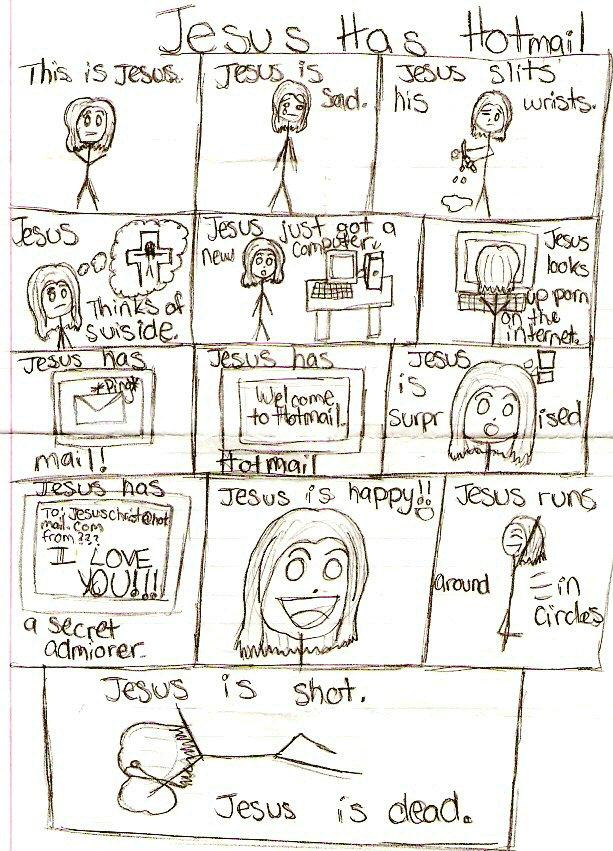 Jesus Has Hotmail
This is Jesus.
Jesus is
Sad.
Jesus slits
his wrists.
Jesus
Thinks of
suiside.
Jesus just got a
new computer.
Jesus
looks
up porn
on the
internet.
Jesus has
*Ping*
mail!
Jesus has
Welcome
to Hotmail.
Hotmail
Jesus
is
surprised
Jesus has
To: Jesuschrist@hot
mail.com
from ???
I LOVE
YOU!!!
a secret
admiorer.
Jesus is happy!!
Jesus runs
around in
circles
Jesus is shot.
Jesus is dead.